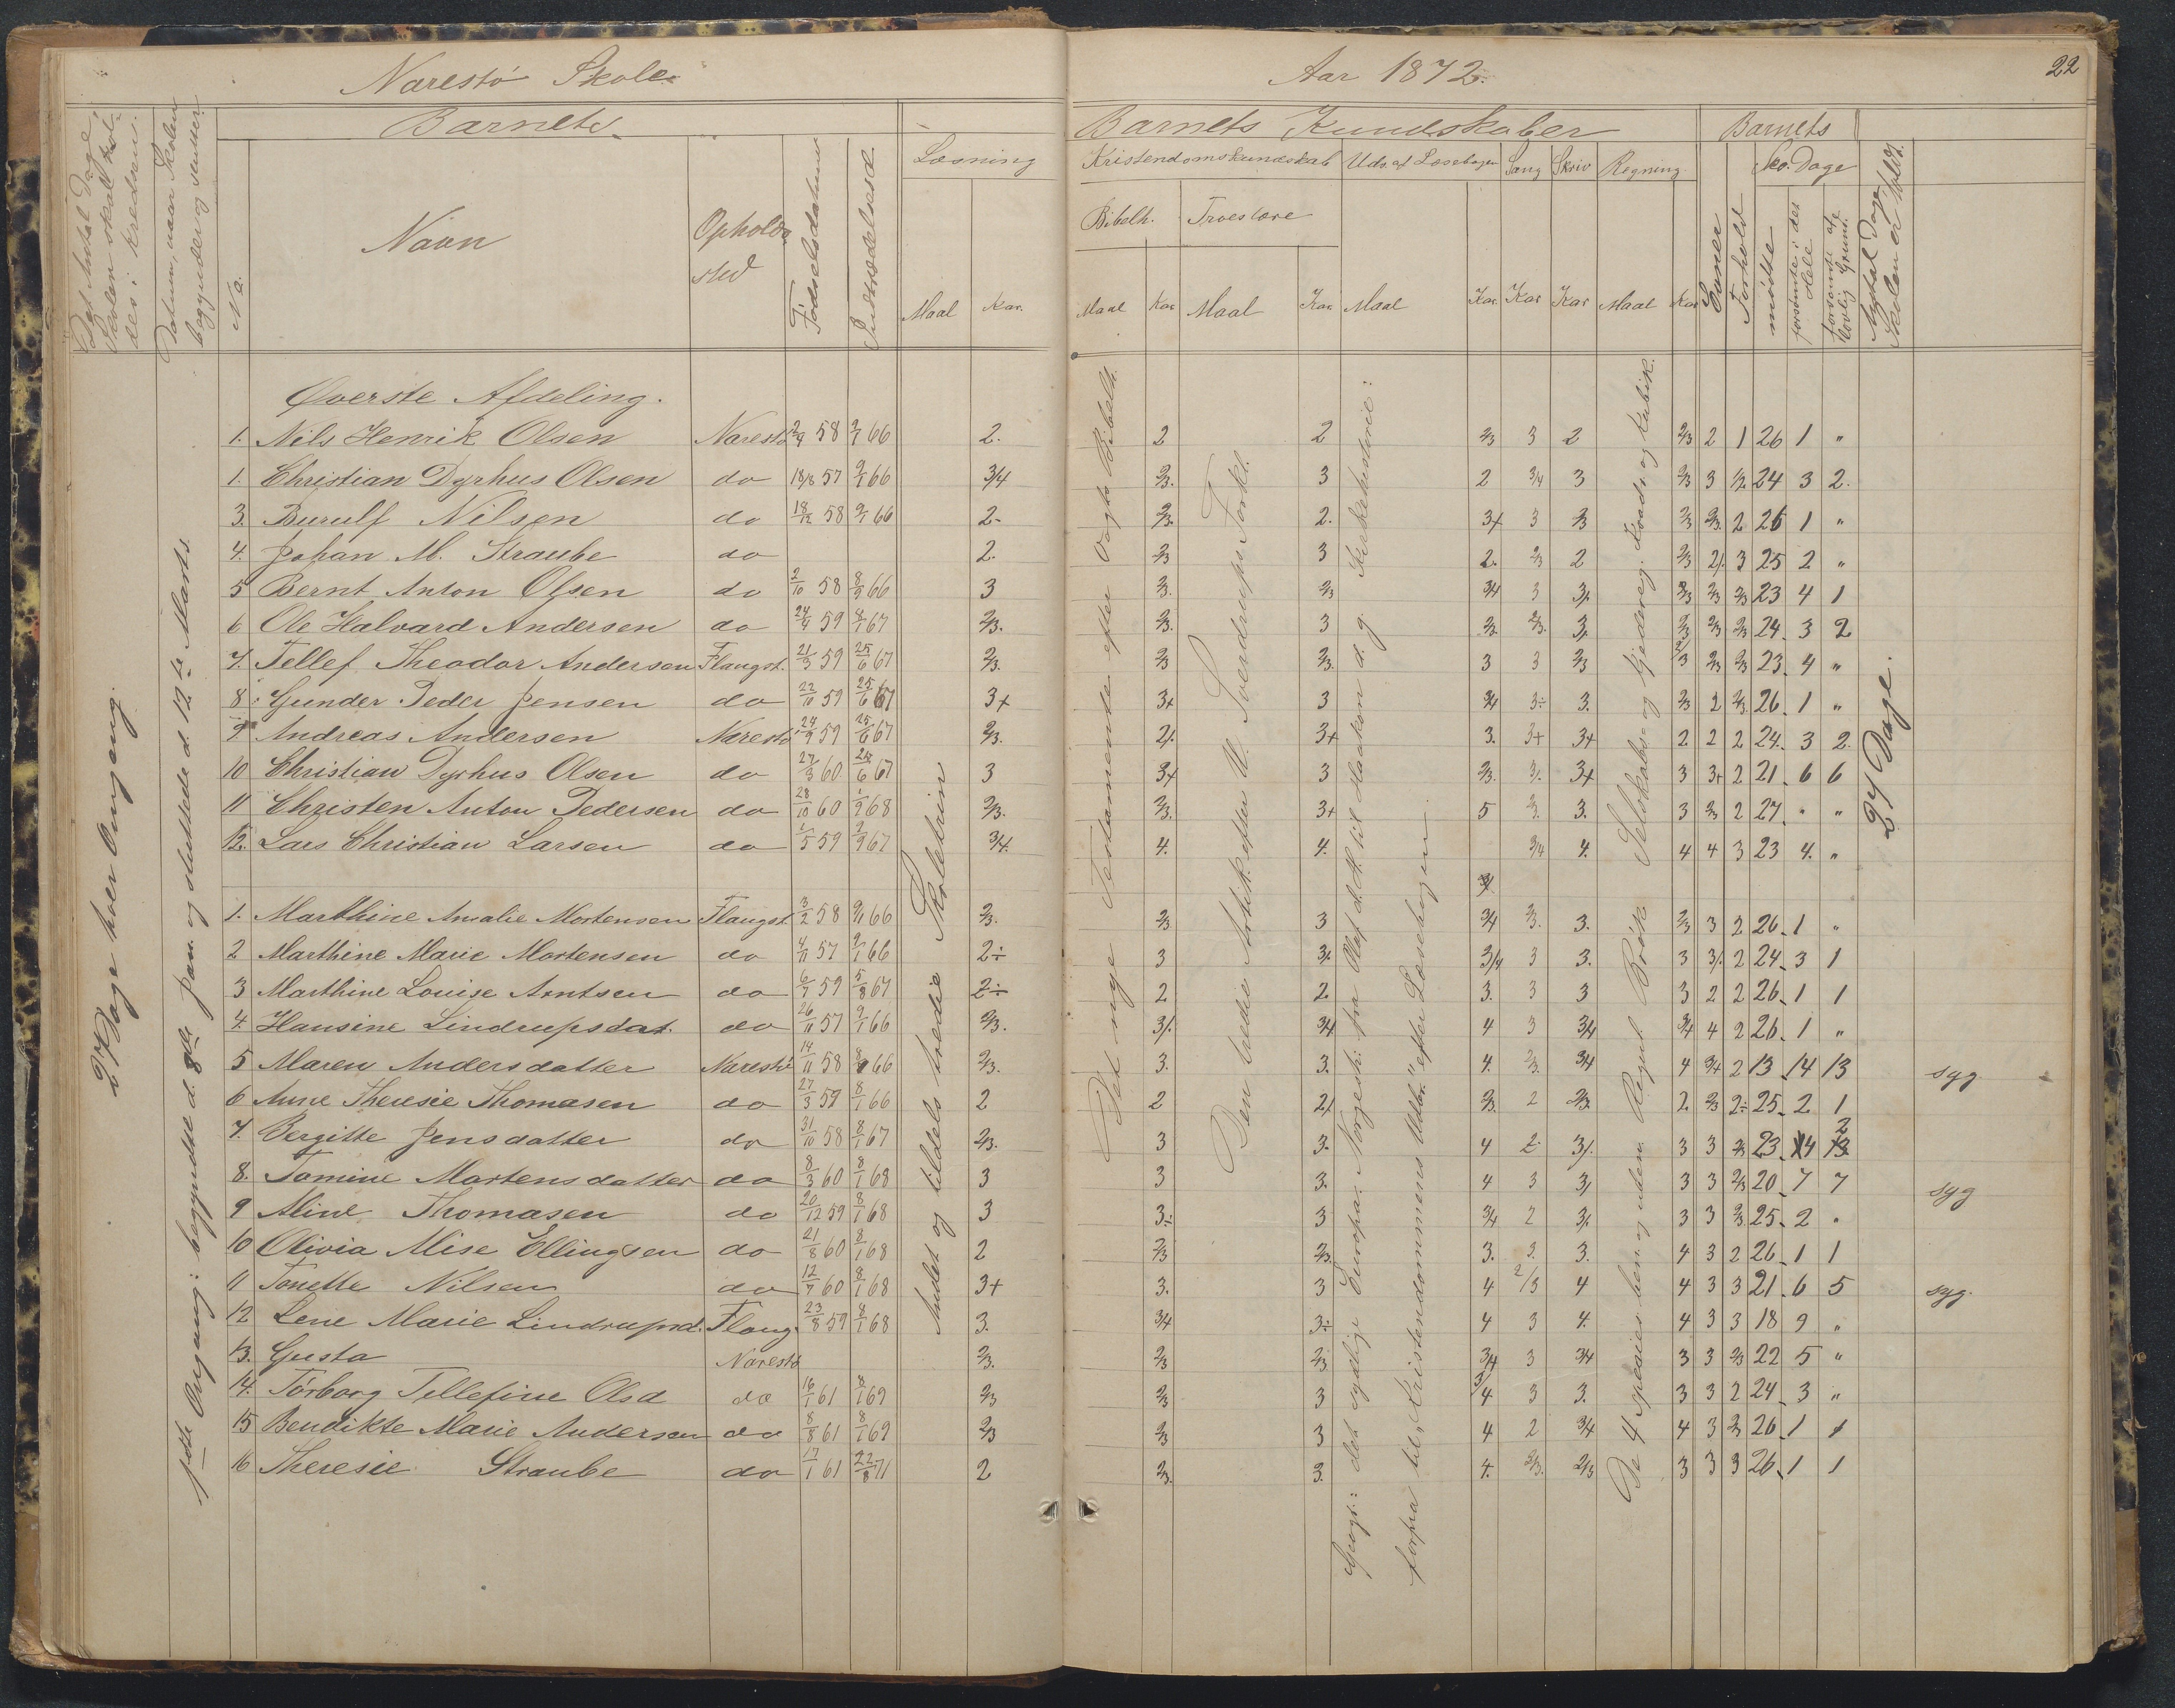 Narestø Skole. Aar 1872. 22
Det Antal Dage, Skolen skal holdes i Kredsen.
Datum, naar Skolen begynder og ender.
Barnets
Barnets Kundskaber
Barnets
No.
Navn
Opholdssted
Fødselsdatum
Indtrædelsesd.
Læsning
Maal Kar.
Kristendomskundskab
Bibelh. Troeslære
Maal Kar. Maal Kar.
Udv. af Læsebogen
Maal Kar.
Sang Kar
Skriv Kar
Regning
Maal Kar
Evner
Forhold
Sko. Dage
mødte
forsømte i det Hele
forsømte af lovlig Grund.
Antal Dage Skolen er holdt.
27 Dage hver Omgang.
1ste Omgang: begyndte d. 8de Jan. og sluttede d. 12te Marts.
Andet og tildels tredie Skoletrin
Det nye Testamente efter Vogts Bibelh.
Den tredie Artik. efter U. Sverdrups Forkl.
Geogr.: det sydlige Europa. Norgesh: fra Olaf d. H. til Haakon d. g. Kirkehistorie:
forfra til "Kristendommens Udbr." efter Læsebogen
De 4 species ben. og uden Regul. Brøk. Selskabs- og Kjedereg. Kvadr. og Kubik.
27 Dage.
Øverste Afdeling.
1. Nils Henrik Olsen Narestø 2/9 58 9/1 66 2. 2 2 2/3 3 2 2/3 2 1 26 1 "
1. Christian Dyrhus Olsen do 18/8 57 9/1 66 3/4 2/3. 3 2 3/4 3 2/3 3 1/2 24 3 2.
3. Burulf Nilsen do 18/12 58 9/1 66 2- 2/3. 2. 3+ 3 2/3 2/3 2/3. 2 26 1 "
4. Johan M. Straube do 2. 2/3 3 2. 2/3 2 2/3 2/. 3 25 2 "
5 Bernt Anton Olsen do 2/10 58 8/9 66 3 2/3. 2/3 3/4 3 3/. 2/3 2/3 2/3 23 4 1
6 Ole Halvard Andersen do 24/9 59 8/1 67 2/3. 2/3. 3 2/3. 2/3. 3/. 2/3 2/3 2/3 24. 3 2
7. Tellef Theodor Andersen Flangst. 21/3 59 25/6 67 2/3. 2/3 2/3. 3 3 2/3 2/3 2/3 2/3 23. 4 "
8. Gunder Peder Jensen do 22/10 59 25/6 67 3+ 3+ 3 3/4 3÷ 3. 2/3 2 2/3 26. 1 "
9. Andreas Andersen Narestø 24/9 59 25/6 67 2/3. 2/. 3+ 3. 3+ 3+ 2 2 2 24. 3 2.
10 Christian Dyrhus Olsen do 27/3 60 24/6 67 3 3+ 3 2/3. 3/. 3+ 3 3+ 2 21. 6 6
11 Christen Anton Pedersen do 28/10 60 1/9 68 2/3. 2/3. 3+ 5 2/3. 3. 3 2/3 2 27. " "
12. Lars Christian Larsen do 1/5 59 2/9 67 3/4. 4. 4. 3/4 4. 4 4 3 23 4. "
1. Marthine Amalie Mortensen Flangst. 3/2 58 9/1 66 2/3. 2/3 3 3/4 2/3. 3. 2/3 3 2 26. 1 "
2 Marthine Marie Mortensen do 4/11 57 9/1 66 2÷ 3 3/. 3/4 3 3. 3 3/. 2 24. 3 1
3 Marthine Louise Arntsen do 6/7 59 5/8 67 2÷ 2 2. 3. 3 3 3 2 2 26. 1 1
4. Hansine Lindrupsdat. do 26/11 57 9/1 66 2/3. 3/. 3/4 4 3 3/4 3/4 4 2 26. 1 "
5 Maren Andersdatter Narestø 14/11 58 8/1 66 2/3. 3. 3. 4. 2/3. 3/4 4 3/4 2 13. 14 13 syg.
6 Anne Theresie Thomasen do 27/3 59 8/1 66 2 2 2/ 2/3. 2 2/3. 2 2/3 2÷ 25. 2 1
7. Bergitte Jensdatter do 31/10 58 8/1 67 2/3. 3 3. 4 2. 3/. 3 3 2/3 23. 4 2
8. Tomine Mortensdatter do 8/3 60 8/1 68 3 3 3. 4 3 3/ 3 3 2/3 20. 7 7 syg
9 Aline Thomasen do 20/12 59 8/1 68 3 3÷ 3 3/4 2 3/. 3 3 2/3 25. 2 "
10 Olivia Alise Ellingsen do 21/8 60 8/1 68 2 2/3 2/3. 3. 2. 3. 4 3 2 26. 1 1
11 Tonette Nilsen do 12/7 60 8/1 68 3+ 3. 3 4 2/3 4 4 3 3 21. 6 5 syg.
12 Lene Marie Lindrupsd. Flang. 23/8 59 8/1 68 3. 3/4 3÷ 4 3 4. 4 3 3 18 9 "
13. Gusta Narestø 2/3. 2/3 2/3 3/4 3 3/4 3 3 2/3 22 5 "
14. Tørborg Tellefine Olsd do 16/1 61 8/1 69 2/3 2/3 3 3/4 3 3. 3 3 2 24. 3 "
15 Bendikte Marie Andersen do 8/8 61 8/1 69 2/3 2/3 3 4 2 3/4 4 3 2/3 26. 1 1
16 Theresie Straube do 17/1 61 22/8 71 2 2/3. 3. 4. 2/3. 2/3 3 3 3 26. 1 1